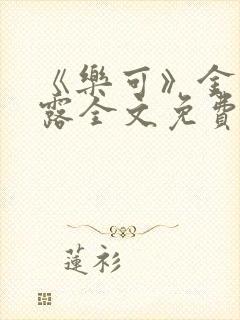 《樂可》金
露全文免費
蓮衫